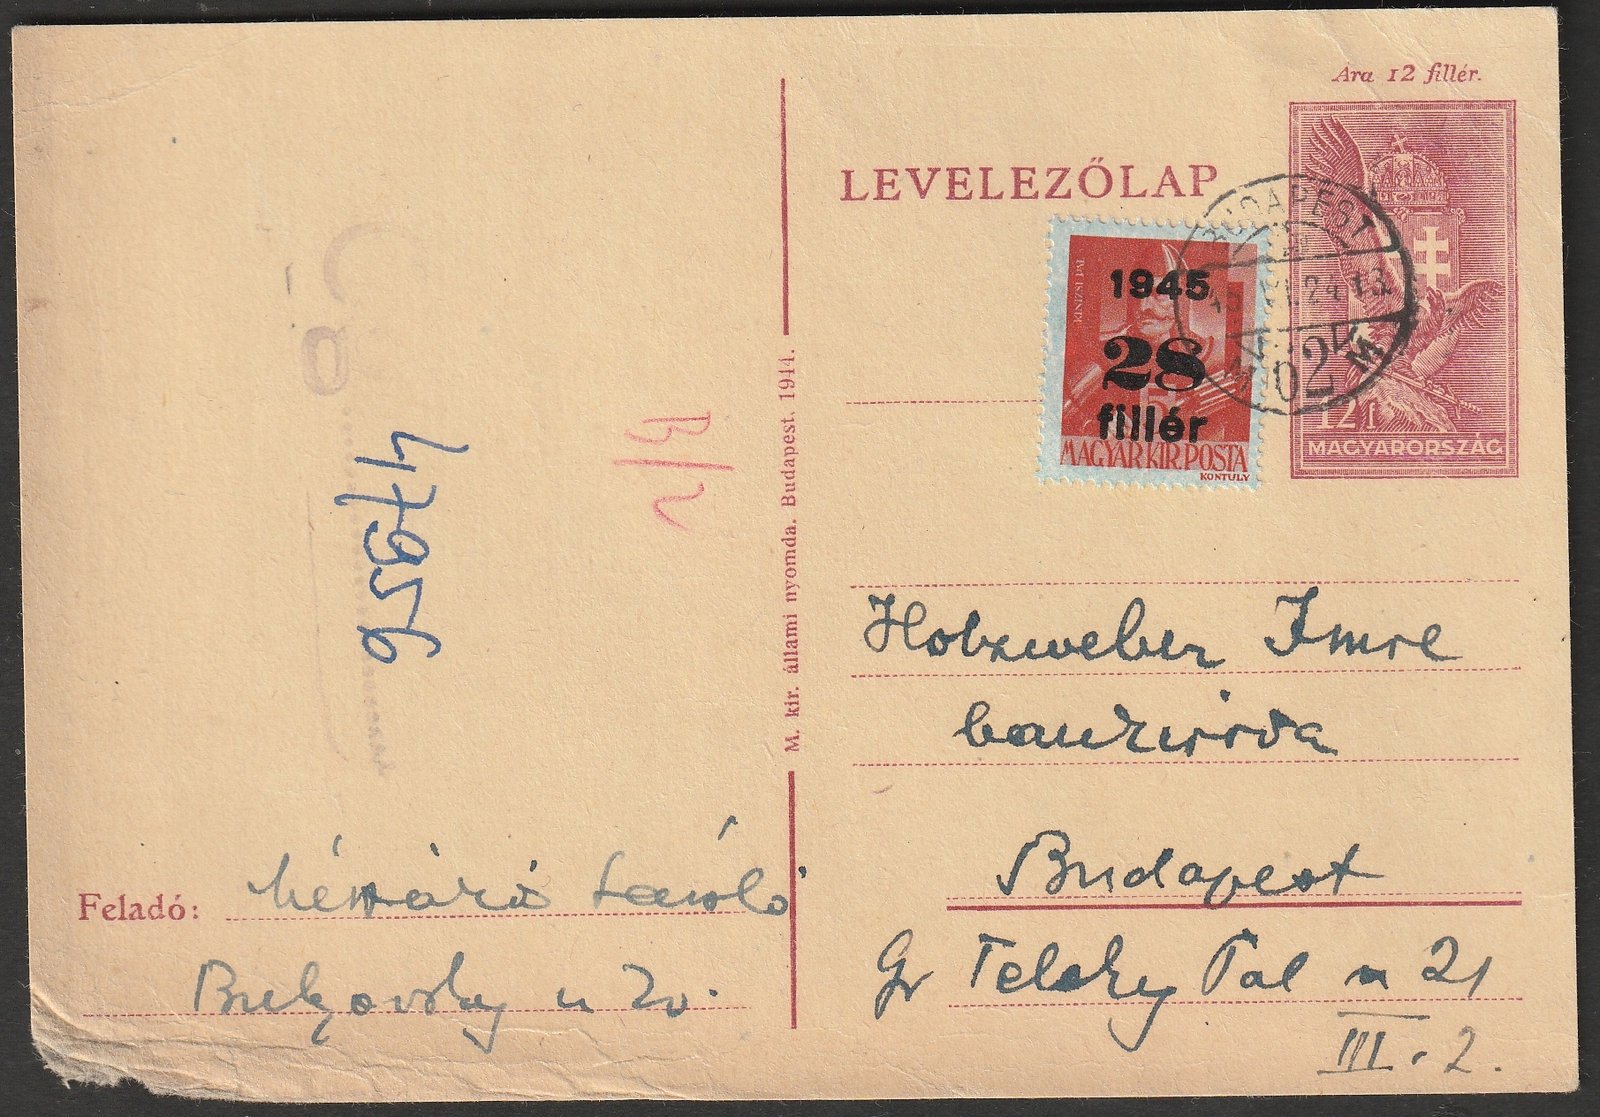 Ára 12 fillér.
LEVELEZŐLAP
BUDAPEST
VI.24.13
62
M
1945
28
fillér
MAGYAR KIR. POSTA
KONTULY
12 f
MAGYARORSZÁG
M. kir. állami nyomda. Budapest. 1944.
B/2
47956
Holzweber Imre
Budapest
Gr Teleky Pal u 21
III. 2.
Feladó: László
u 20.